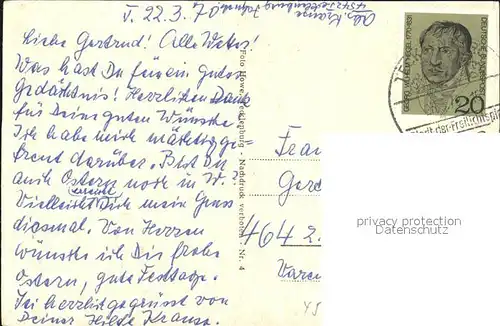 T. 22.3.70
Abs. Krause
4542 Tecklenburg
Liebe Gertrud! Alle Wetter!
Was hast Du für ein gutes
Gedächtnis! Herzlichen Dank
für Deine guten Wünsche!
Ich habe mich mächtig ge-
freut darüber. Bist Du
auch Ostern noch in W.?
Vielleicht Dich mein Gruss
diesmal. Von Herzen
wünsche ich Dir frohe
Ostern, gute Festtage.
Sei herzlich gegrüsst von
Deiner Hilde Krause.
Foto Howe, Tecklenburg - Nachdruck verboten - Nr. 4
GEORG WILHELM HEGEL 1770-1831
DEUTSCHE BUNDESPOST
20
Stadt der Freilichtspi
Frau
Ger
464 2.
Varen
45
privacy protection
Datenschutz